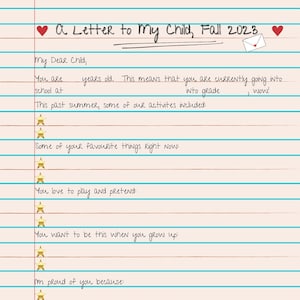 A Letter to My Child, Fall 2023
My Dear Child,
You are years old. This means that you are currently going into
school at into grade , wow!
This past summer, some of our activites included
Some of your favourite things right now
You love to play and pretend
You want to be this when you grow up
I'm proud of you because